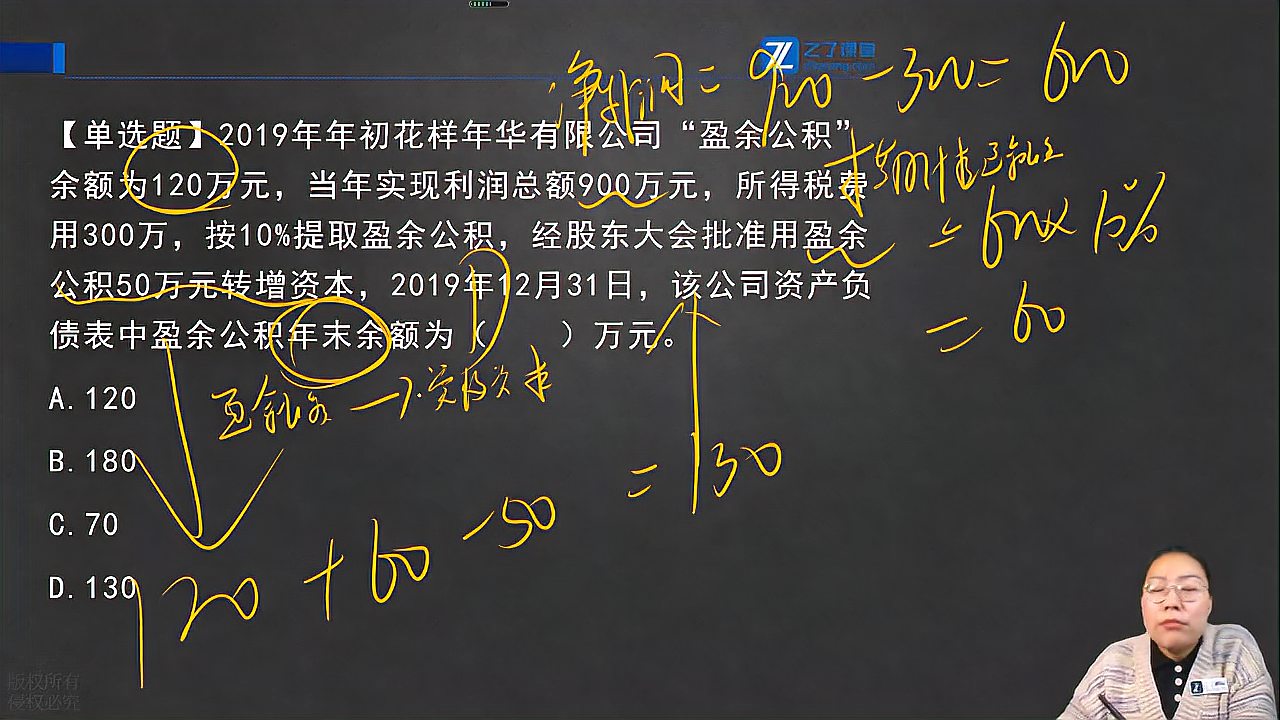 之了课堂
净利润 = 900 - 300 = 600
【单选题】2019年年初花样年华有限公司“盈余公积”
余额为120万元，当年实现利润总额900万元，所得税费
用300万，按10%提取盈余公积，经股东大会批准用盈余
公积50万元转增资本，2019年12月31日，该公司资产负
债表中盈余公积年末余额为（　　）万元。
= 600 × 10%
= 60
A.120
B.180
C.70
D.130
120 + 60 - 50 = 130
版权所有
侵权必究